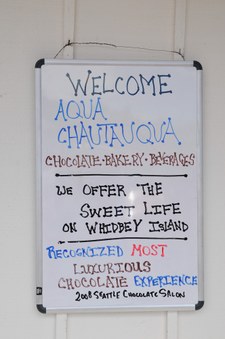 WELCOME
AQUA
CHAUTAUQUA
CHOCOLATE · BAKERY · BEVERAGES
WE OFFER THE
SWEET LIFE
ON WHIDBEY ISLAND
RECOGNIZED MOST
LUXURIOUS
CHOCOLATE EXPERIENCE
2008 SEATTLE CHOCOLATE SALON